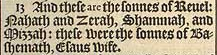 13 And these are the sonnes of Reuel:
Nahath and Zerah, Shammah, and
Mizzah: these were the sonnes of Ba-
shemath, Esaus wife.